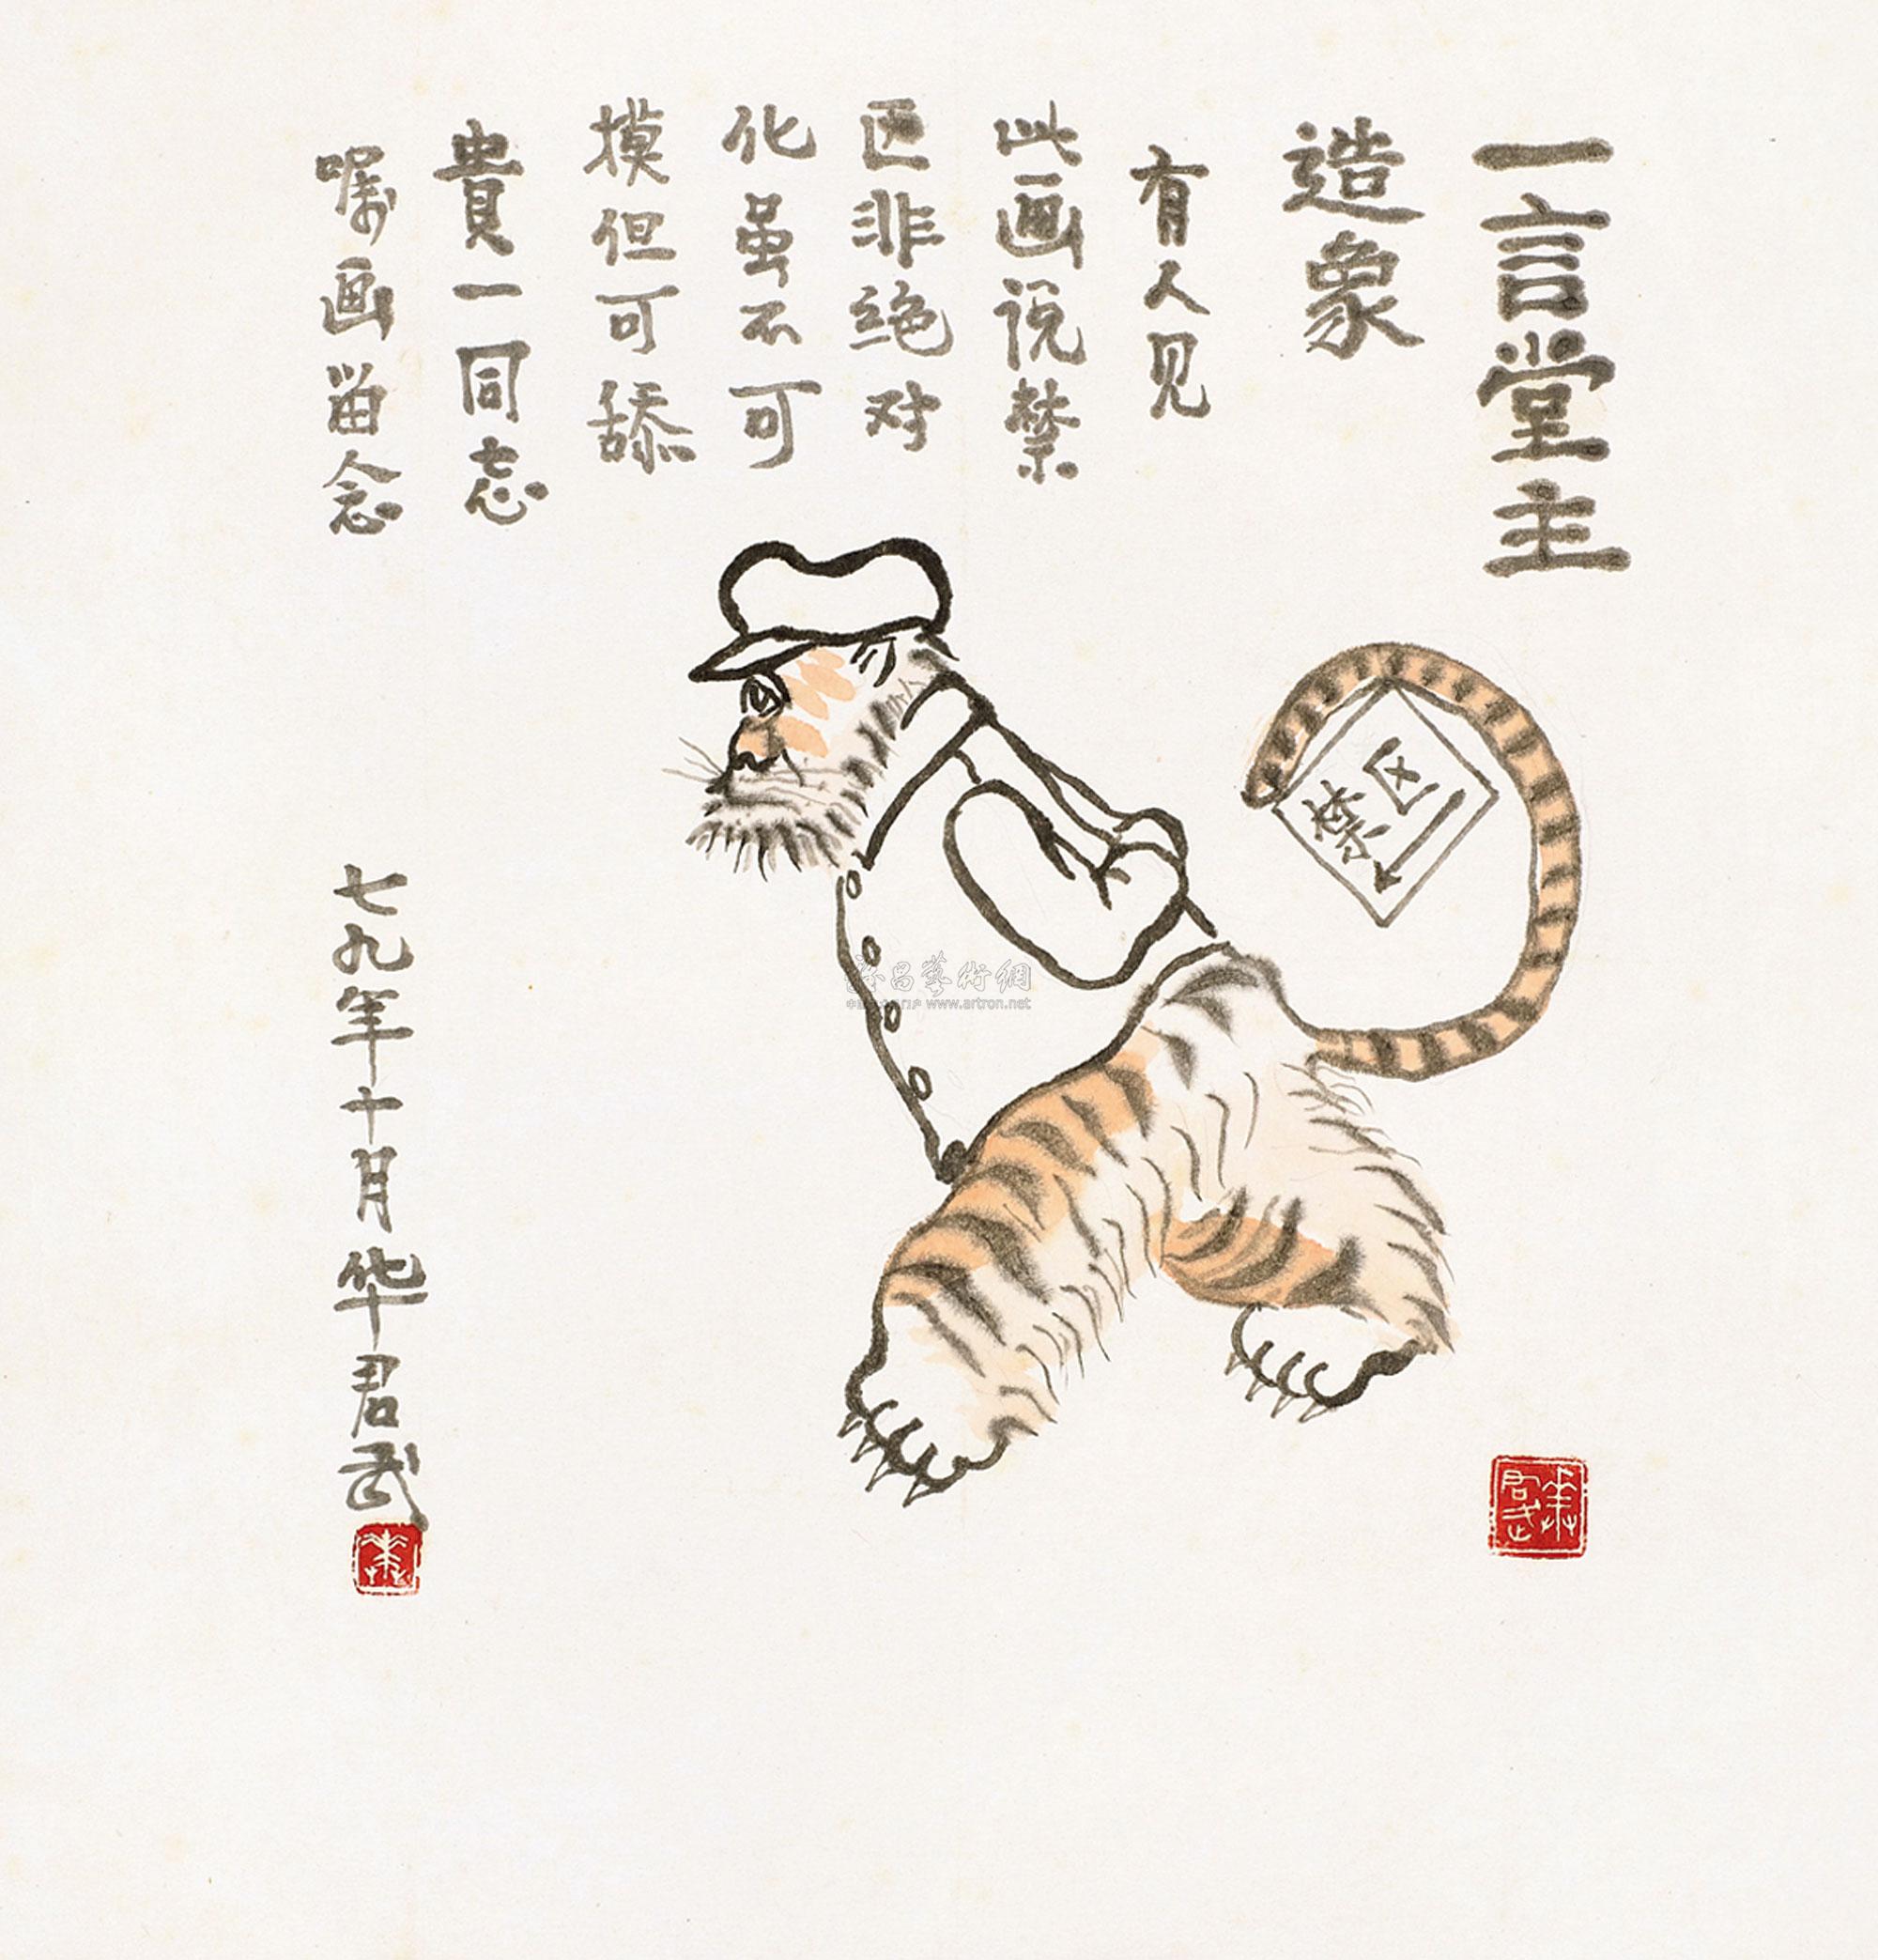 一言堂主
造象
有人见
此画说禁
区非绝对
化虽不可
摸但可舔
貴一同志
嘱画畄念
七九年十月华君武
禁区
華君武
華
www.artron.net